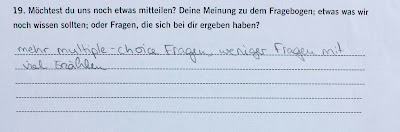 19. Möchtest du uns noch etwas mitteilen? Deine Meinung zu dem Fragebogen; etwas was wir
noch wissen sollten; oder Fragen, die sich bei dir ergeben haben?
mehr multiple-choice Fragen, weniger Fragen mit
viel Erzählen